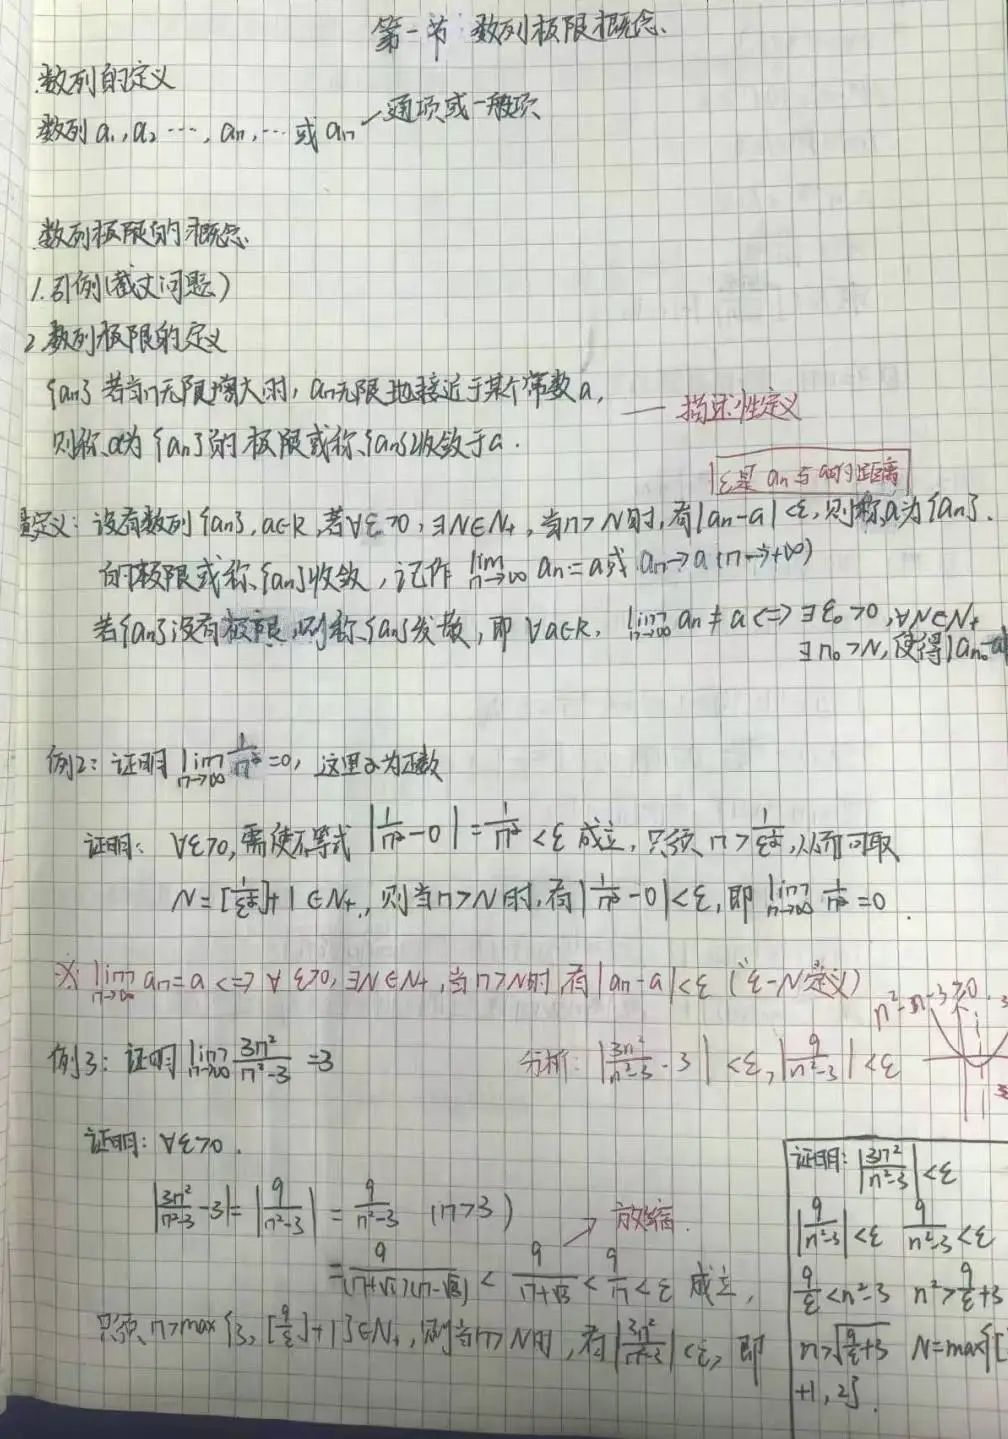 第一节 数列极限概念.
数列的定义
数列 a₁, a₂ ⋯, aₙ, ⋯ 或 aₙ 通项或一般项
数列极限的概念
1. 引例(截丈问题)
2 数列极限的定义
{aₙ} 若当n无限增大时, aₙ无限地接近于某个常数a, — 描述性定义
则称a为{aₙ}的极限或称{aₙ}收敛于a.
ε是 aₙ与a的距离
定义: 设有数列{aₙ}, a∈R, 若∀ε>0, ∃N∈N₊, 当n>N时, 有|aₙ-a|<ε, 则称a为{aₙ}.
的极限或称{aₙ}收敛, 记作 lim n→∞ aₙ=a或 aₙ→a (n→+∞)
若{aₙ}没有极限, 则称{aₙ}发散, 即 ∀a∈R, lim n→∞ aₙ ≠ a <=> ∃ε₀>0, ∀N∈N₊
∃n₀>N, 使得|aₙ₀-a|
例2: 证明 lim n→∞ 1/n^α =0, 这里α为正数
证明: ∀ε>0, 需使不等式 |1/n^α - 0| = 1/n^α < ε 成立, 只须 n > 1/ε^(1/α), 从而可取
N=[1/ε^(1/α)]+1 ∈N₊, 则当n>N时, 有|1/n^α - 0|<ε, 即 lim n→∞ 1/n^α =0.
※ lim n→∞ aₙ=a <=> ∀ε>0, ∃N∈N₊, 当n>N时, 有|aₙ-a|<ε ("ε-N"定义)
例3: 证明 lim n→∞ 3n²/(n²-3) =3
分析: |3n²/(n²-3) - 3| <ε, |9/(n²-3)| <ε
证明: ∀ε>0.
|3n²/(n²-3) - 3| = |9/(n²-3)| = 9/(n²-3) (n>3)
放缩.
= 9/((n+√3)(n-√3)) < 9/(n+√3) < 9/n < ε 成立,
只须 n>max{3, [9/ε]+1}∈N₊, 则当n>N时, 有|3n²/(n²-3)|<ε, 即
证明: |3n²/(n²-3)| <ε
|9/(n²-3)| <ε 9/(n²-3) <ε
9/ε < n²-3 n² > 9/ε+3
n>√(9/ε+3) N=max{[
+1, 2}.